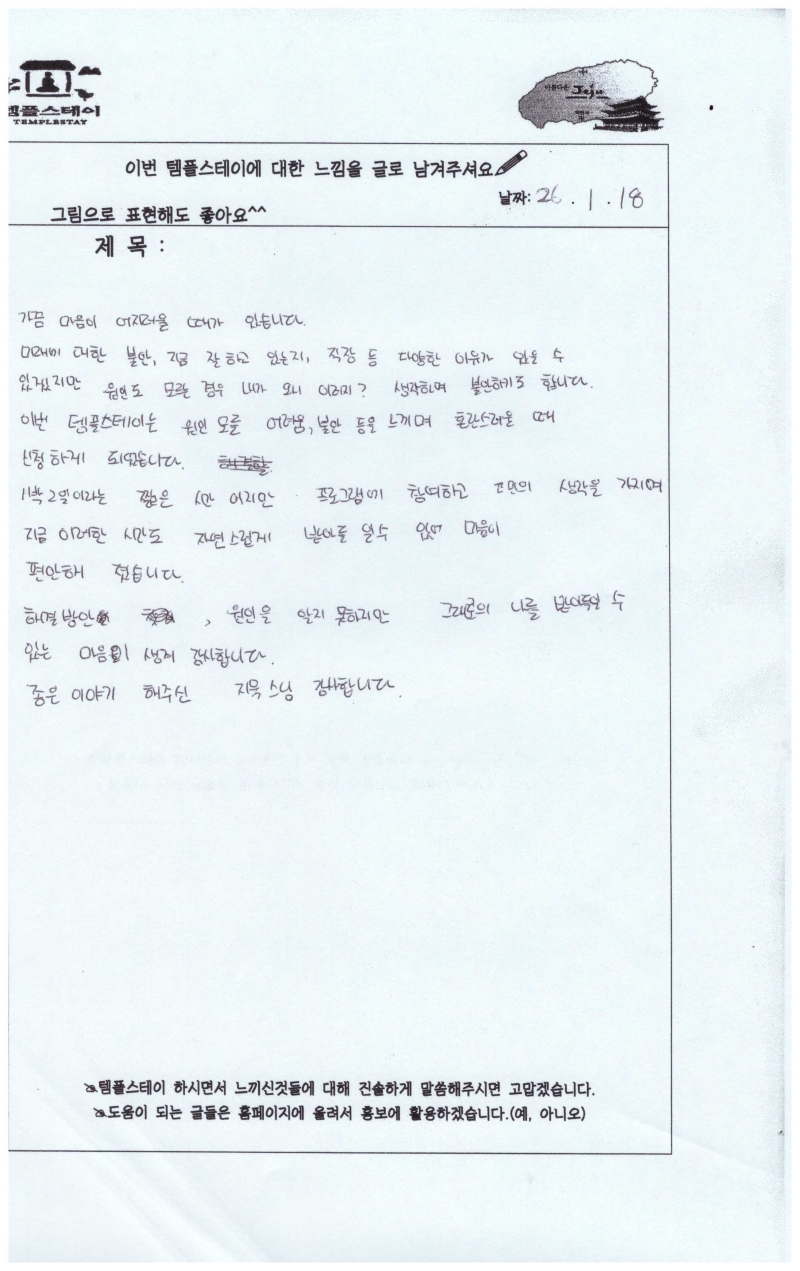 템플스테이
TEMPLESTAY
아름다운
이번 템플스테이에 대한 느낌을 글로 남겨주셔요
날짜: 26.1.18
그림으로 표현해도 좋아요^^
제 목 :
가끔 마음이 어지러울 때가 있습니다.
미래에 대한 불안, 지금 잘 하고 있는지, 직장 등 다양한 이유가 있을 수
있겠지만 원인도 모를 경우 내가 왜 이러지? 생각하며 불안해하기도 합니다.
이번 템플스테이는 원인 모를 어려움, 불안 등을 느끼며 혼란스러운 때
신청하게 되었습니다.
1박 2일이라는 짧은 시간 이지만 프로그램에 참여하고 고민의 생각을 가지며
지금 이러한 시간도 자연스럽게 받아들 일수 있어 마음이
편안해 졌습니다.
해결방안 , 원인을 알지 못하지만 그대로의 나를 받아들일 수
있는 마음이 생겨 감사합니다.
좋은 이야기 해주신 지욱 스님 감사합니다.
템플스테이 하시면서 느끼신것들에 대해 진솔하게 말씀해주시면 고맙겠습니다.
도움이 되는 글들은 홈페이지에 올려서 홍보에 활용하겠습니다.(예, 아니오)